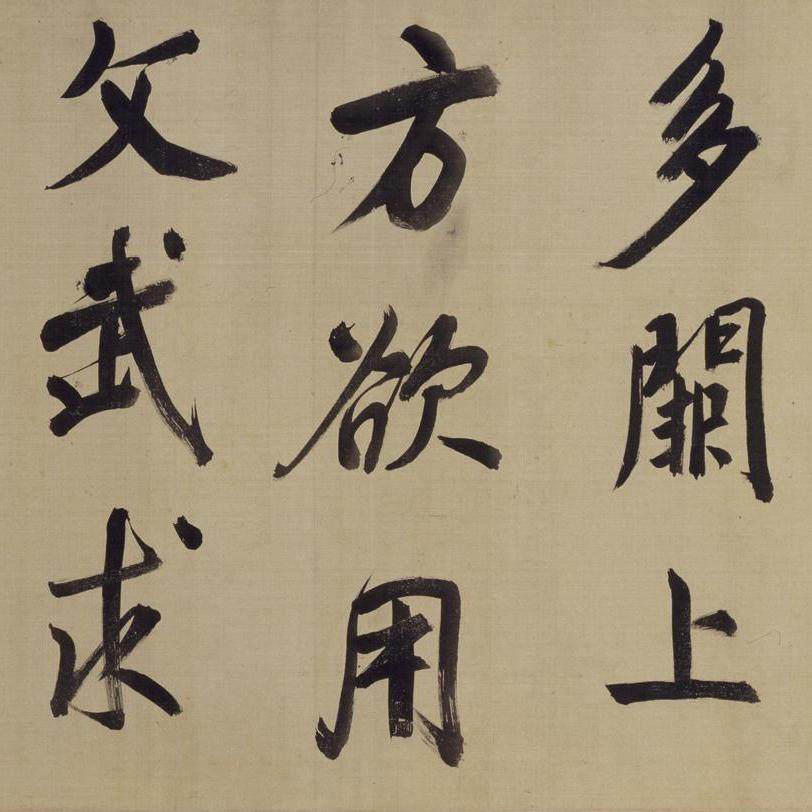 多闕上
方欲用
文武求